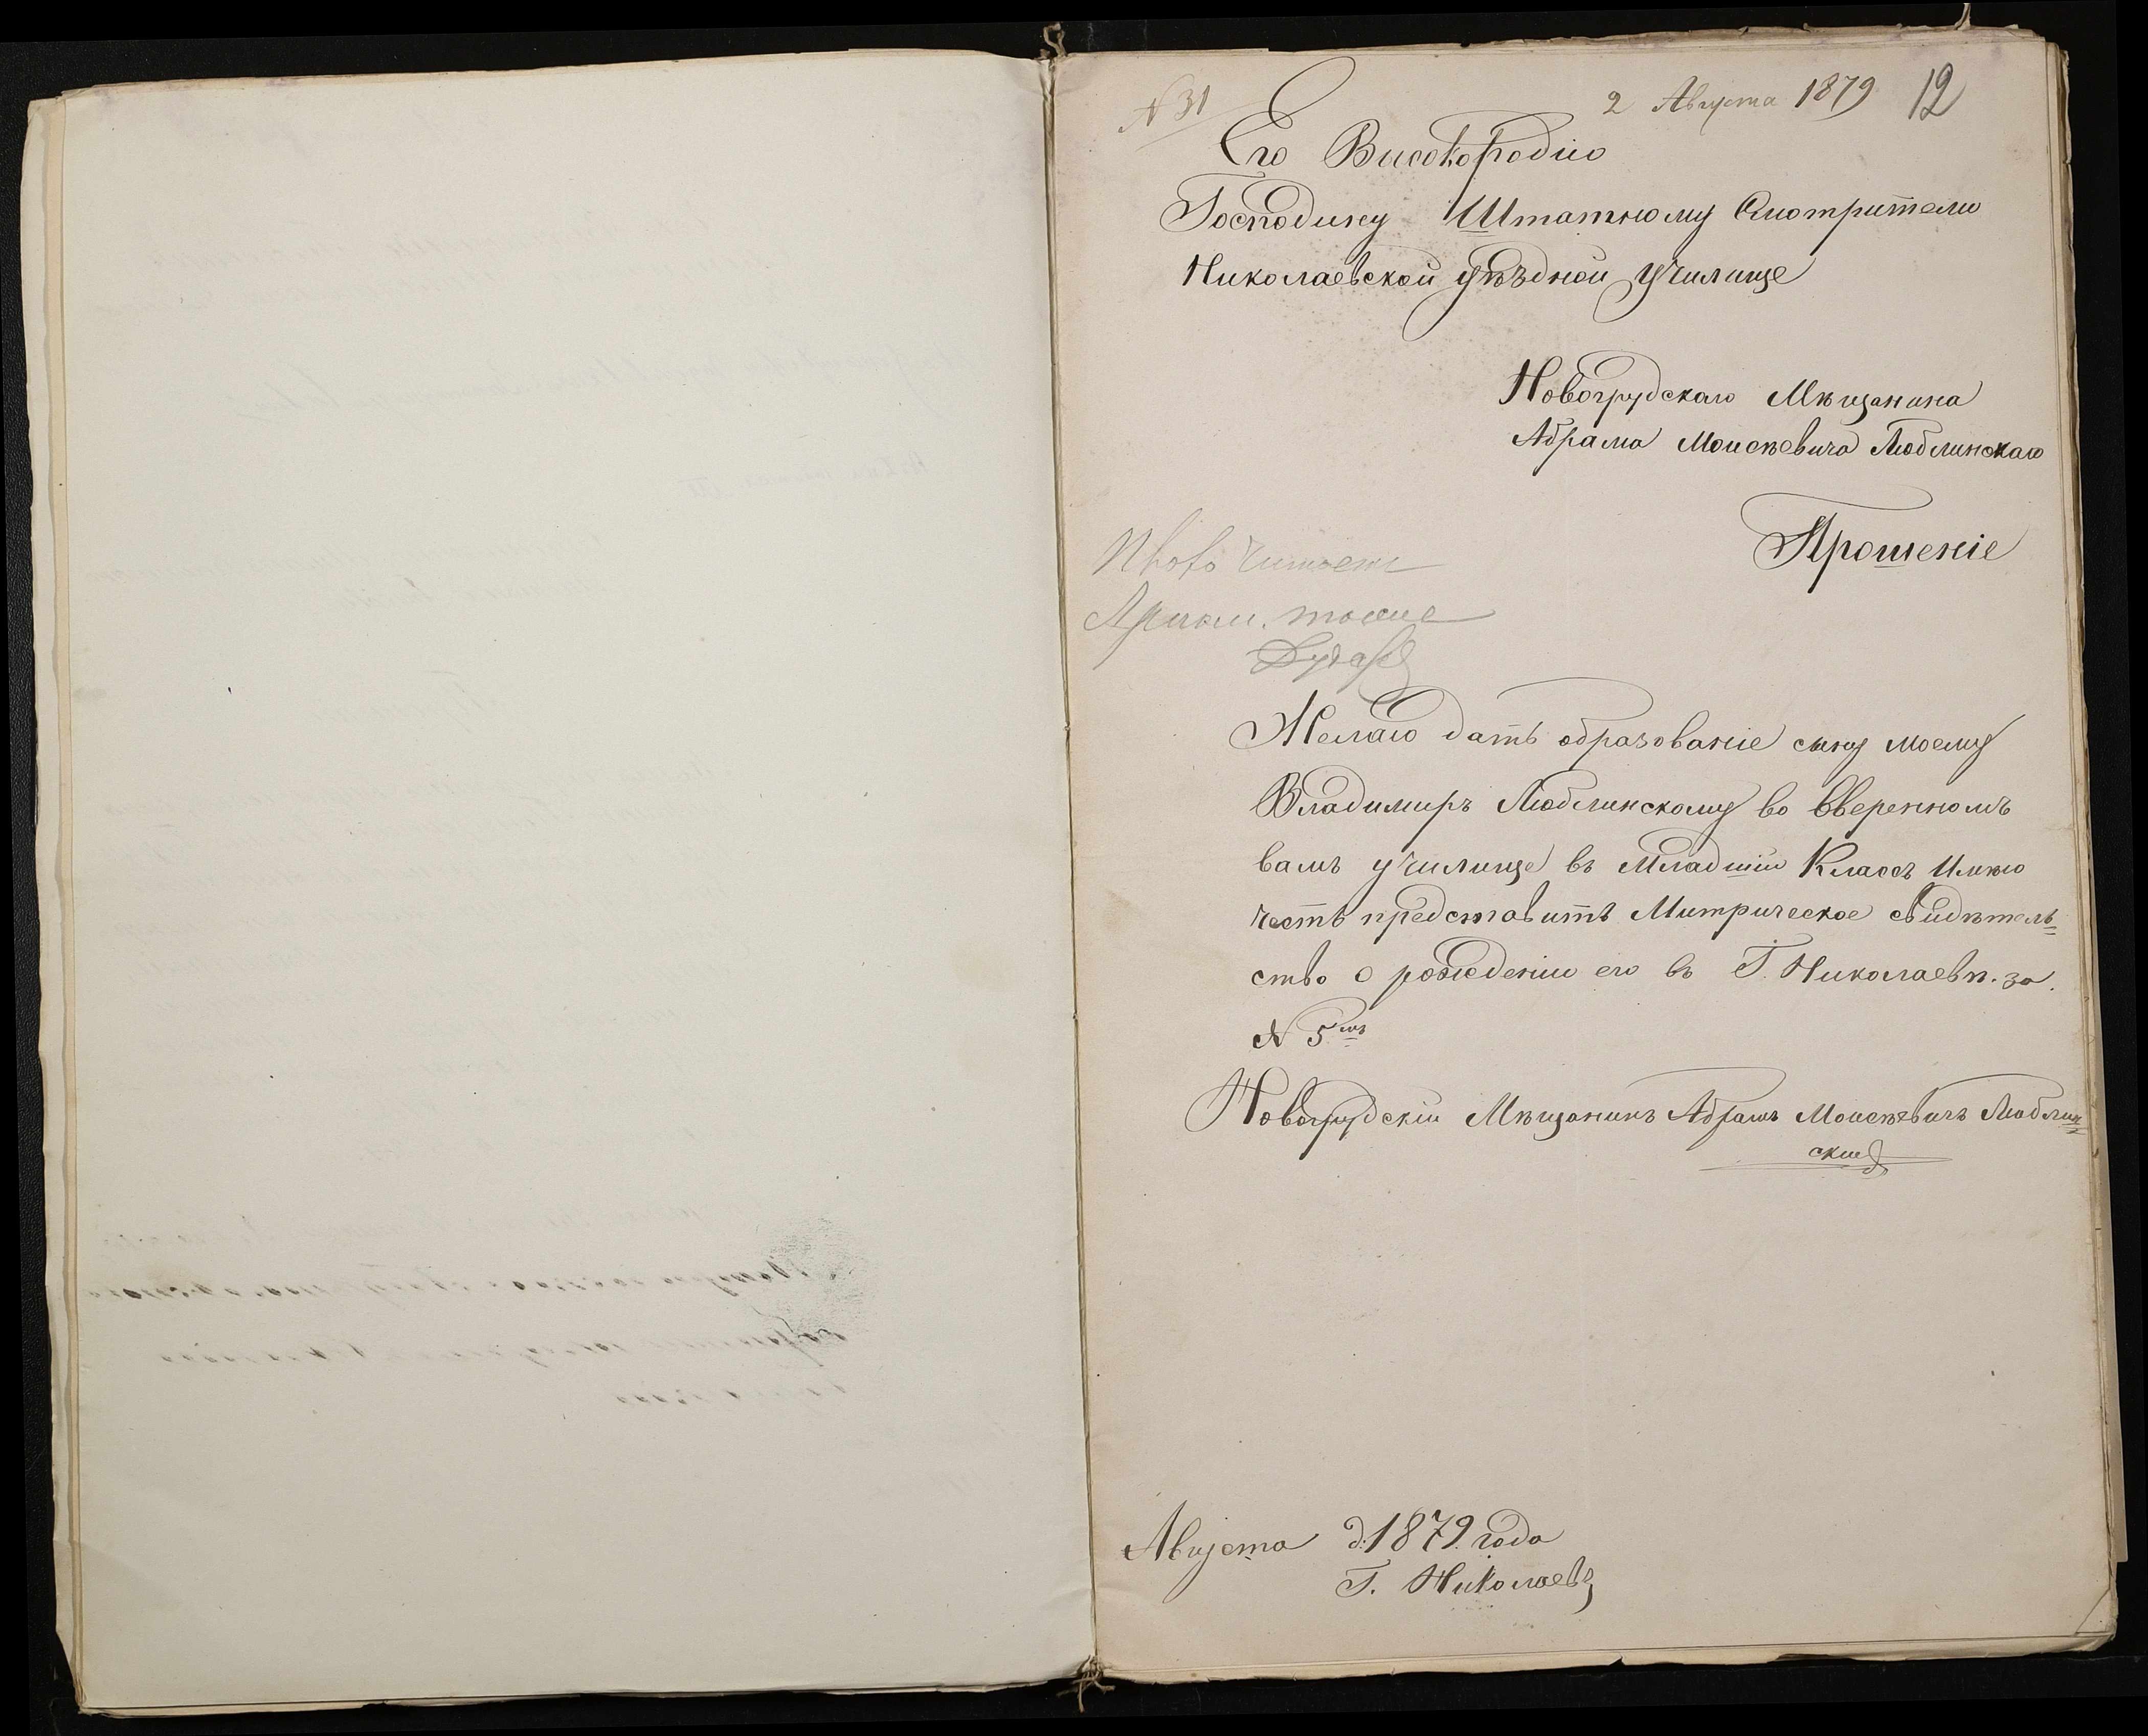 N 31
2 Августа 1879 12
Его Високородію
Господину Штатному Смотрителю
Николаевской уѣздной училище
Новогрудскаго Мѣщанина
Абрама Моисѣевича Люблинскаго
Прошеніе
читаетъ
тоже
Желаю дать образованіе сыну моему
Владимиръ Люблинскому во вверенномъ
вамъ училище въ Младшій Классъ Имѣю
честь представить Митрическое свидѣтель=
ство о рождении его въ Г. Николаевѣ. за.
N 5мъ
Новогрудскій Мѣщанинъ Абрамъ Моисѣевичъ Люблин=
скій
Августа д. 1879. года
Г. Николаевъ